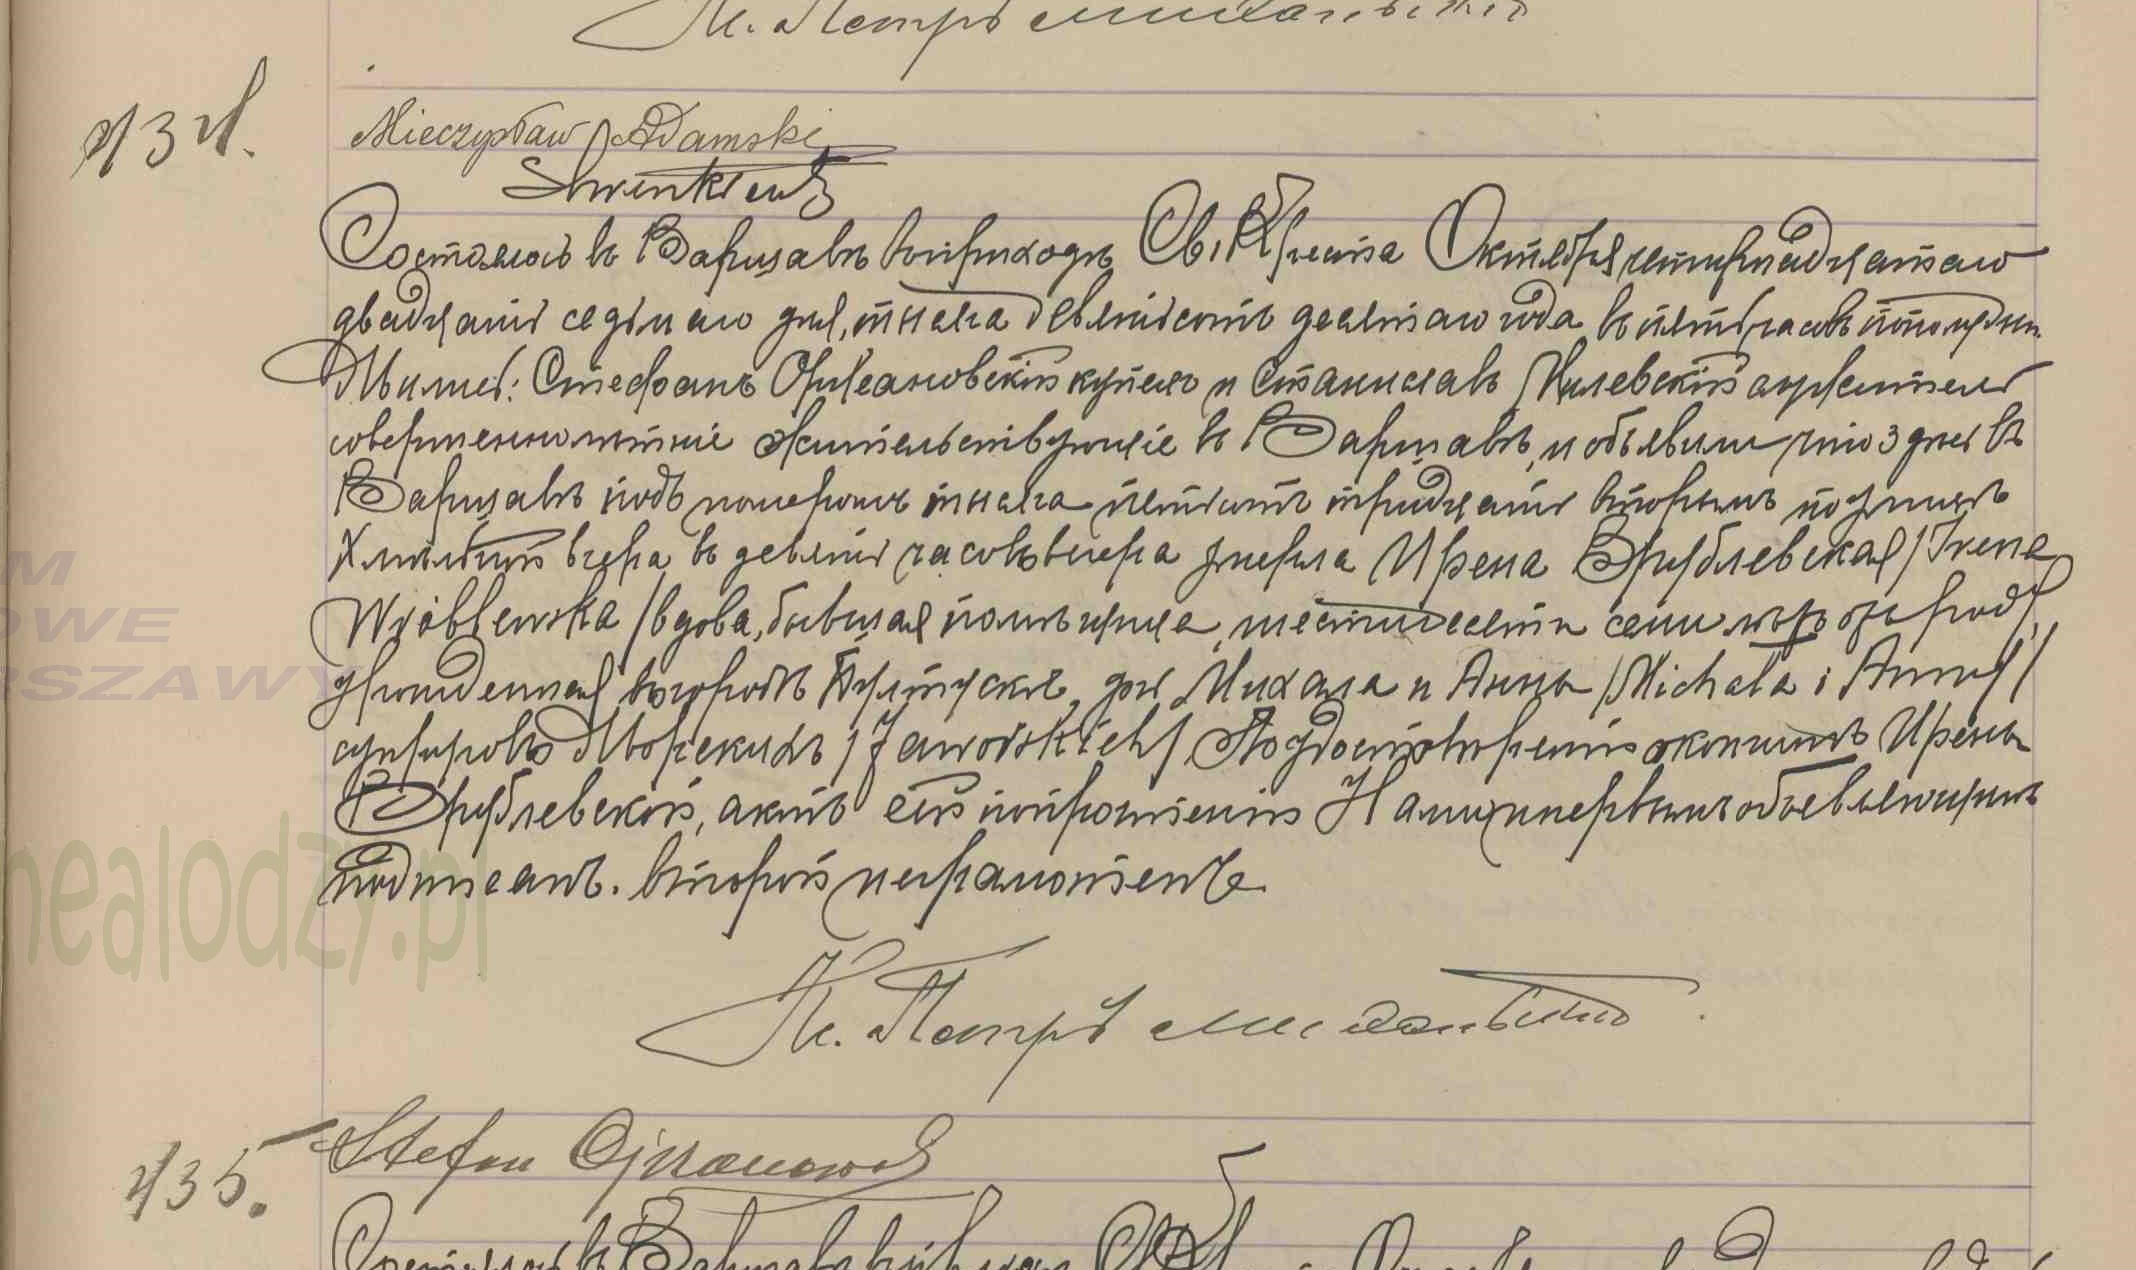 Кс. Петръ
434.
Mieczysław Adamski
Состоялось въ Варшавѣ въ приходѣ Св. Креста Октября четырнадцатаго
двадцать седьмаго дня, тысяча девятьсотъ десятаго года въ пять часовъ пополудни.
Явились: Стефанъ купецъ и Станиславъ служитель
совершеннолѣтніе жительствующіе въ Варшавѣ, и объявили что здѣсь въ
Варшавѣ подъ номеромъ тысяча пятьсотъ тридцать вторымъ по улицѣ
Хмѣльной вчера въ девять часовъ вечера умерла Ирена Врублевская /Irena
Wróblewska/ вдова, бывшая помѣщица, шестидесяти семи лѣтъ отъ роду,
урожденная въ городѣ Пултускѣ, дочь Михала и Анны /Michała i Anny/
супруговъ Яворскихъ /Jaworskich/. По удостовѣреніи о кончинѣ Ирены
Врублевской, актъ сей по прочтеніи Нами и первымъ объявляющимъ
подписанъ. второй неграмотенъ.
Кс. Петръ
435.
Stefan
Состоялось въ Варшавѣ въ приходѣ Св.
M
OWE
RSZAWY
nealodzy.pl